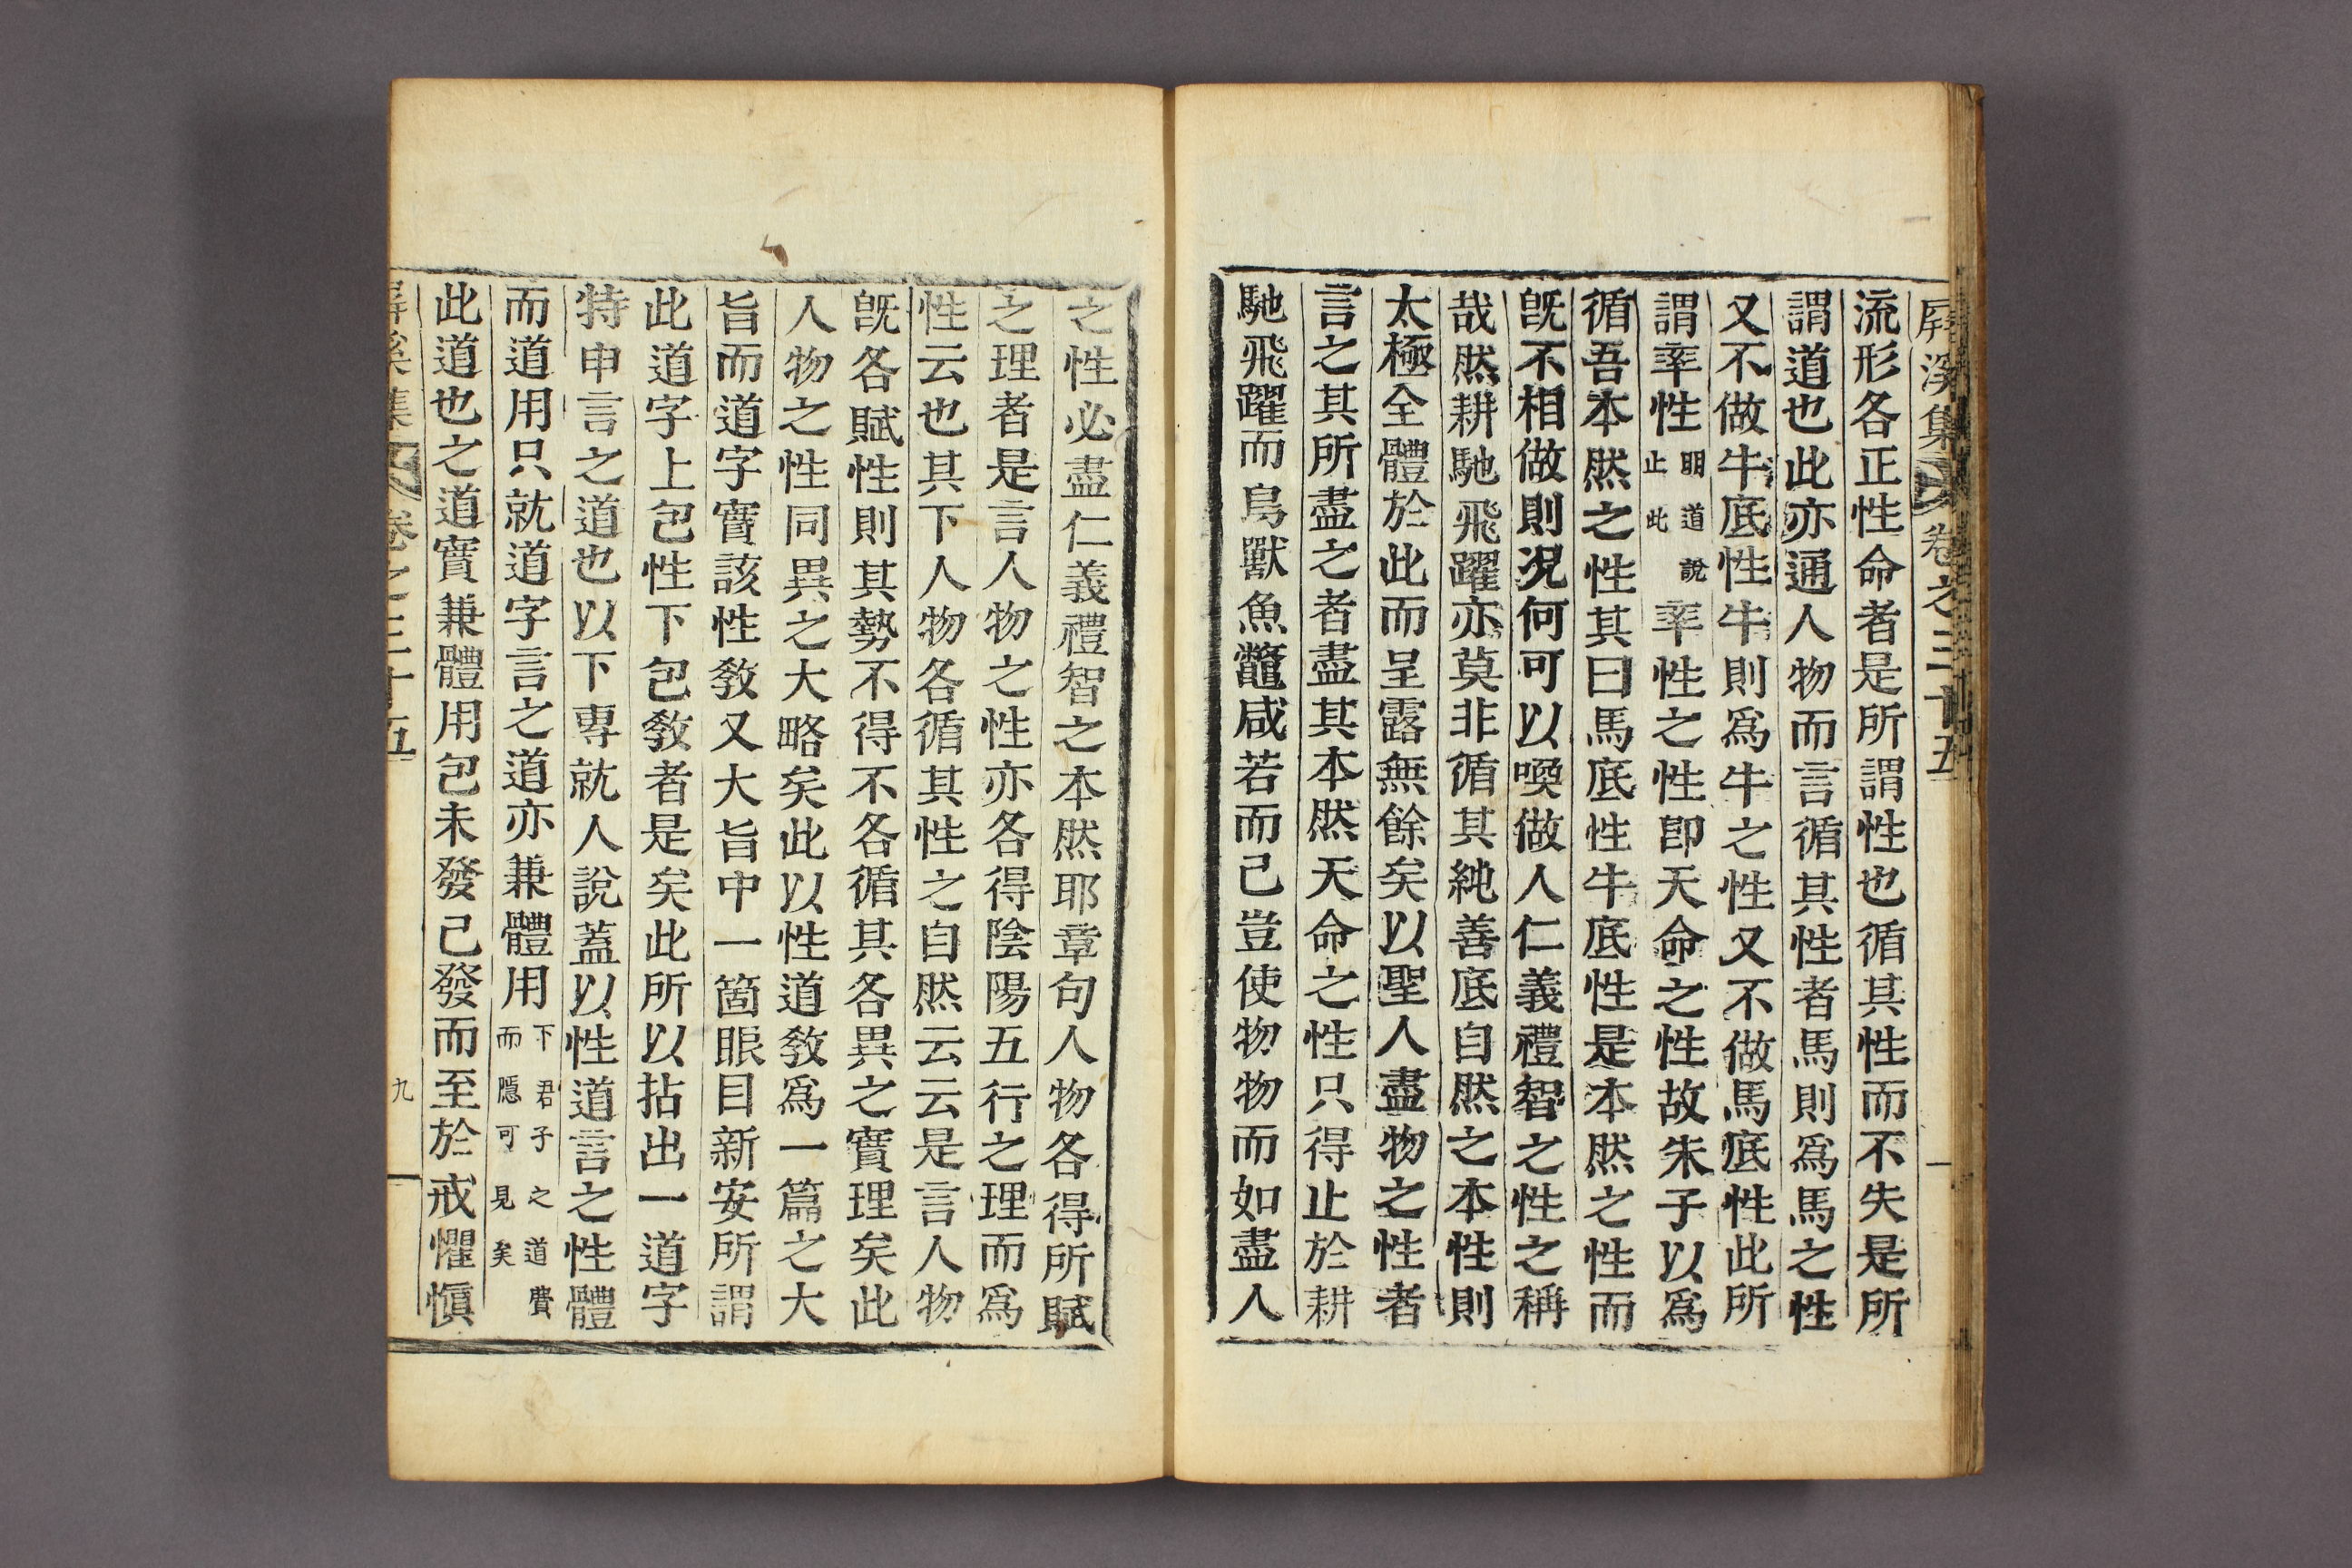 屛溪集 卷之三十五
流形各正性命者是所謂性也循其性而不失是所
謂道也此亦通人物而言循其性者馬則爲馬之性
又不做牛底性牛則爲牛之性又不做馬底性此所
謂率性明道說止此率性之性卽天命之性故朱子以爲
循吾本然之性其曰馬底性牛底性是本然之性而
旣不相做則况何可以喚做人仁義禮智之性之稱
哉然耕馳飛躍亦莫非循其純善底自然之本性則
太極全體於此而呈露無餘矣以聖人盡物之性者
言之其所盡之者盡其本然天命之性只得止於耕
馳飛躍而鳥獸魚鼈咸若而已豈使物物而如盡人
之性必盡仁義禮智之本然耶章句人物各得所賦
之理者是言人物之性亦各得陰陽五行之理而爲
性云也其下人物各循其性之自然云云是言人物
旣各賦性則其勢不得不各循其各異之實理矣此
人物之性同異之大略矣此以性道敎爲一篇之大
旨而道字實該性敎又大旨中一箇眼目新安所謂
此道字上包性下包敎者是矣此所以拈出一道字
特申言之道也以下專就人說蓋以性道言之性體
而道用只就道字言之道亦兼體用下君子之道費而隱可見矣
此道也之道實兼體用包未發已發而至於戒懼愼
屛溪集 卷之三十五 九